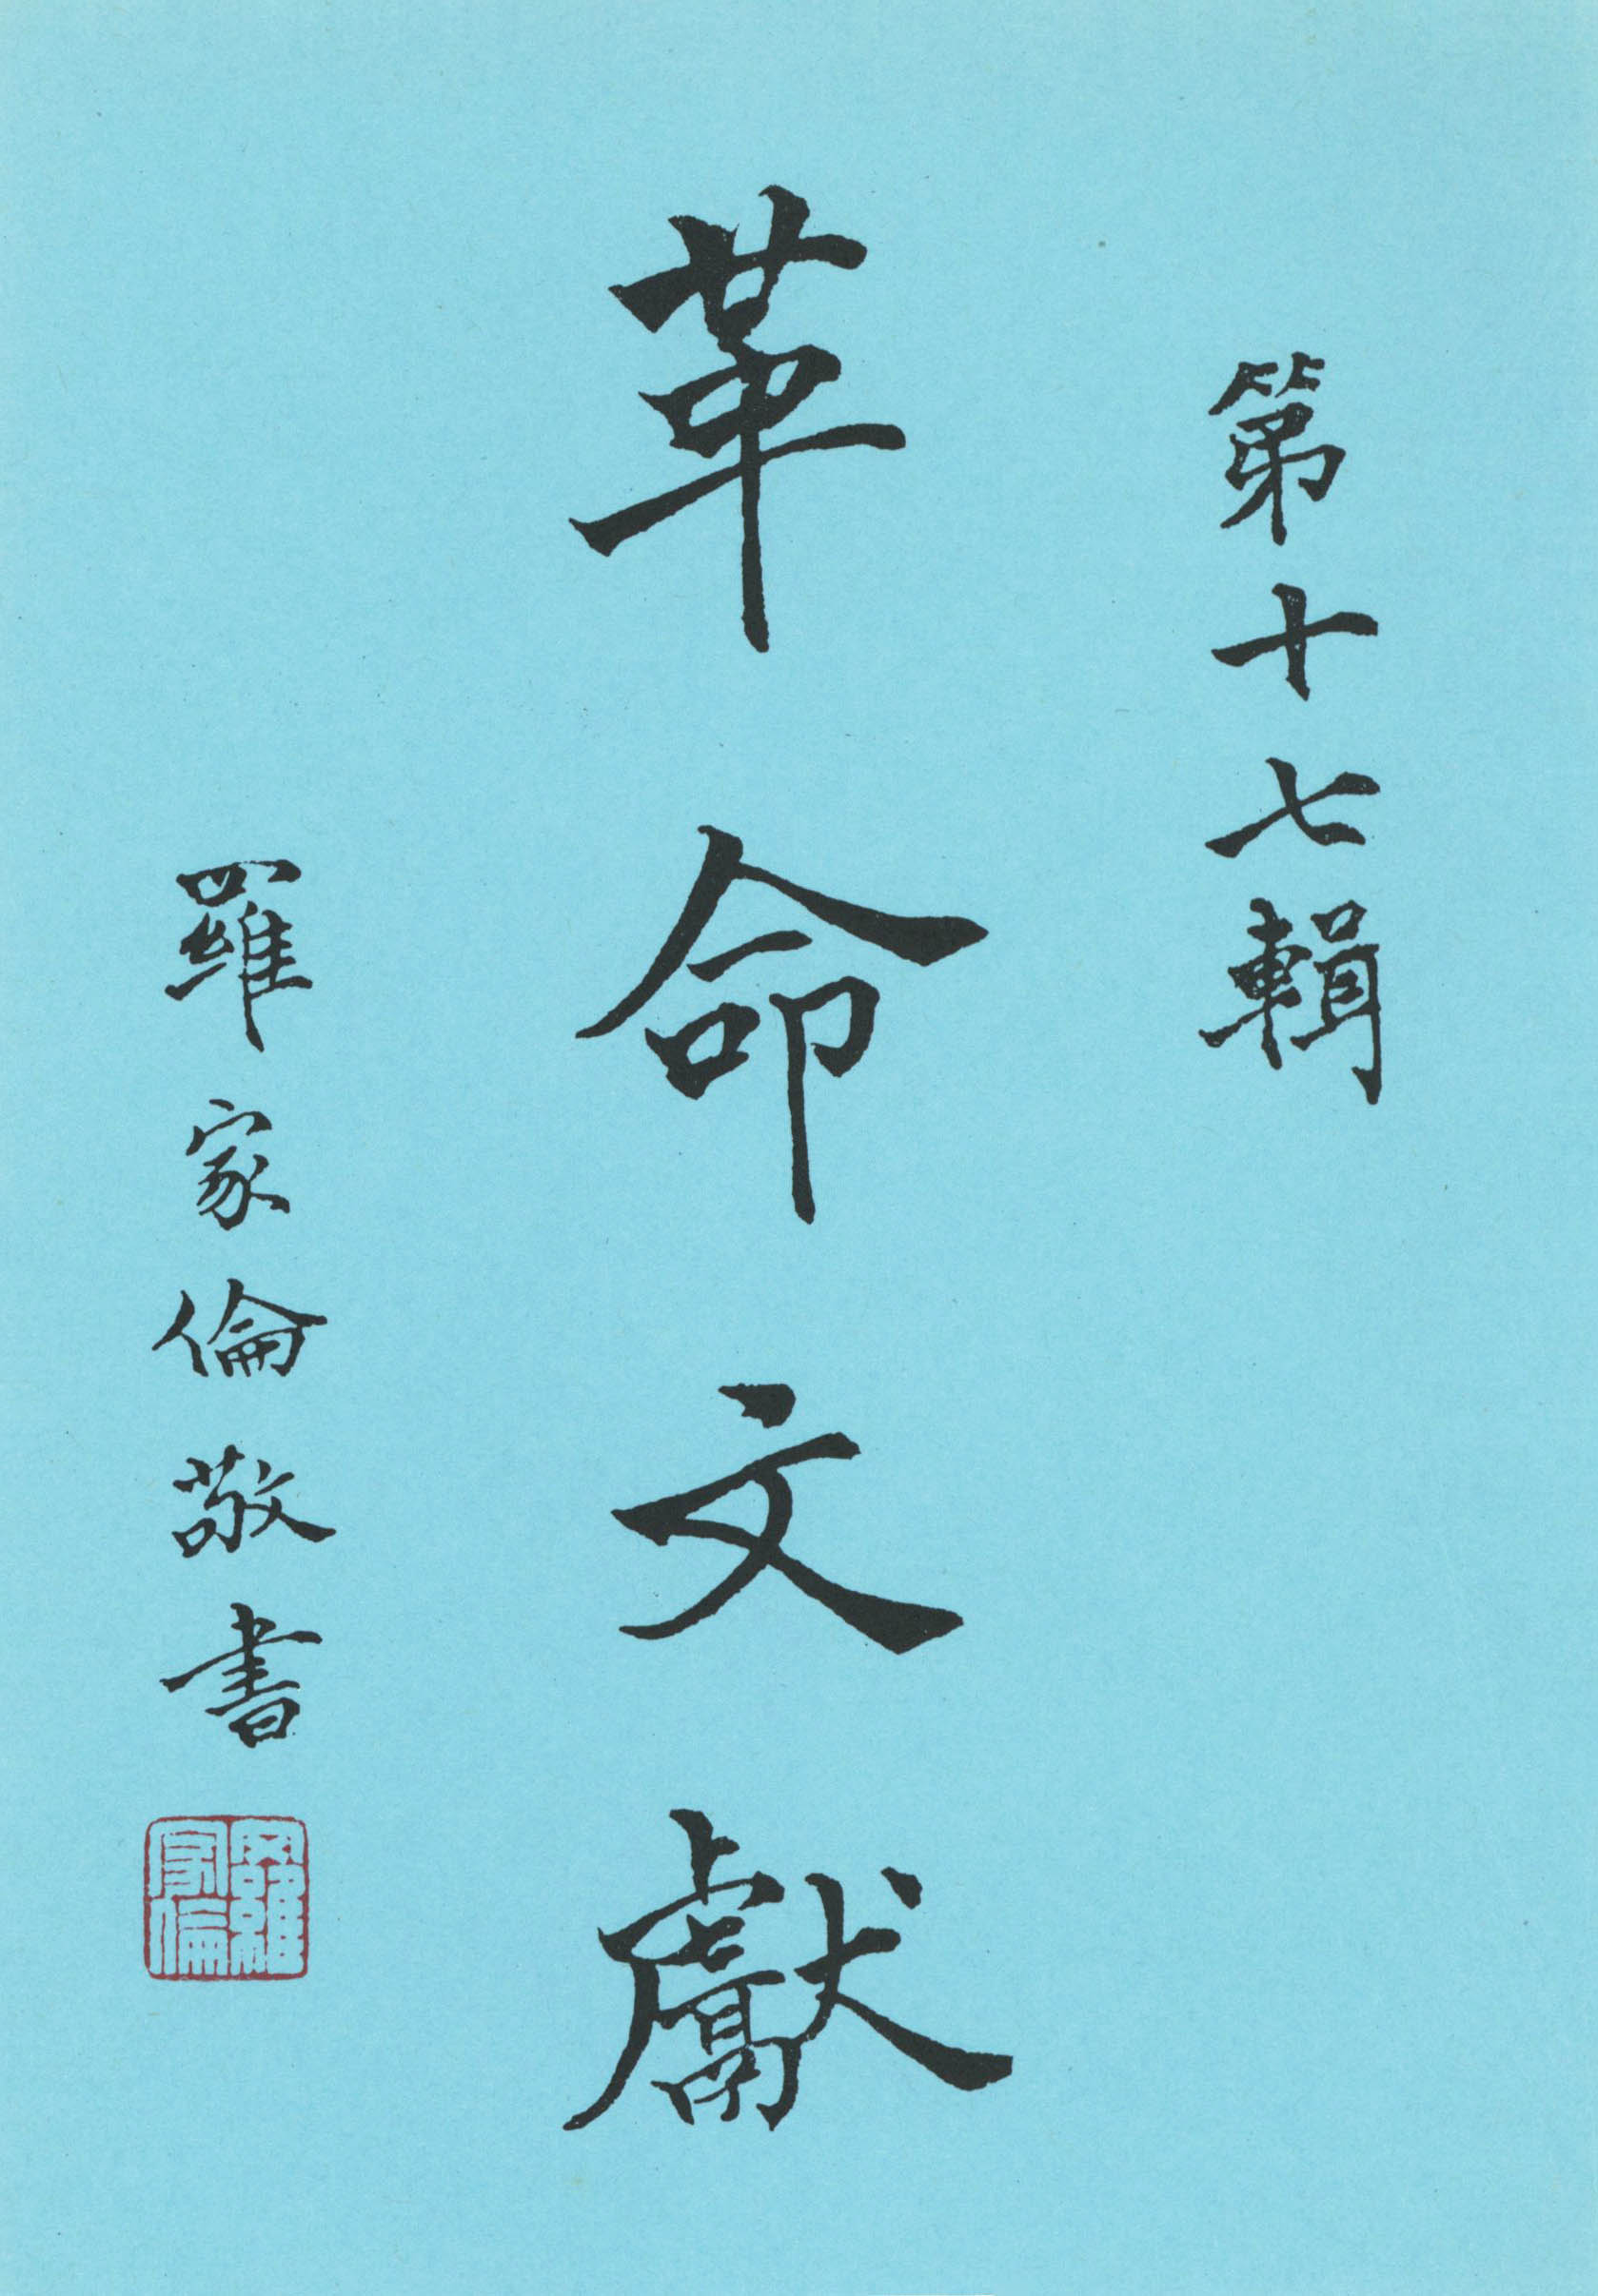 第十七輯
革命文獻
羅家倫敬書
羅家倫